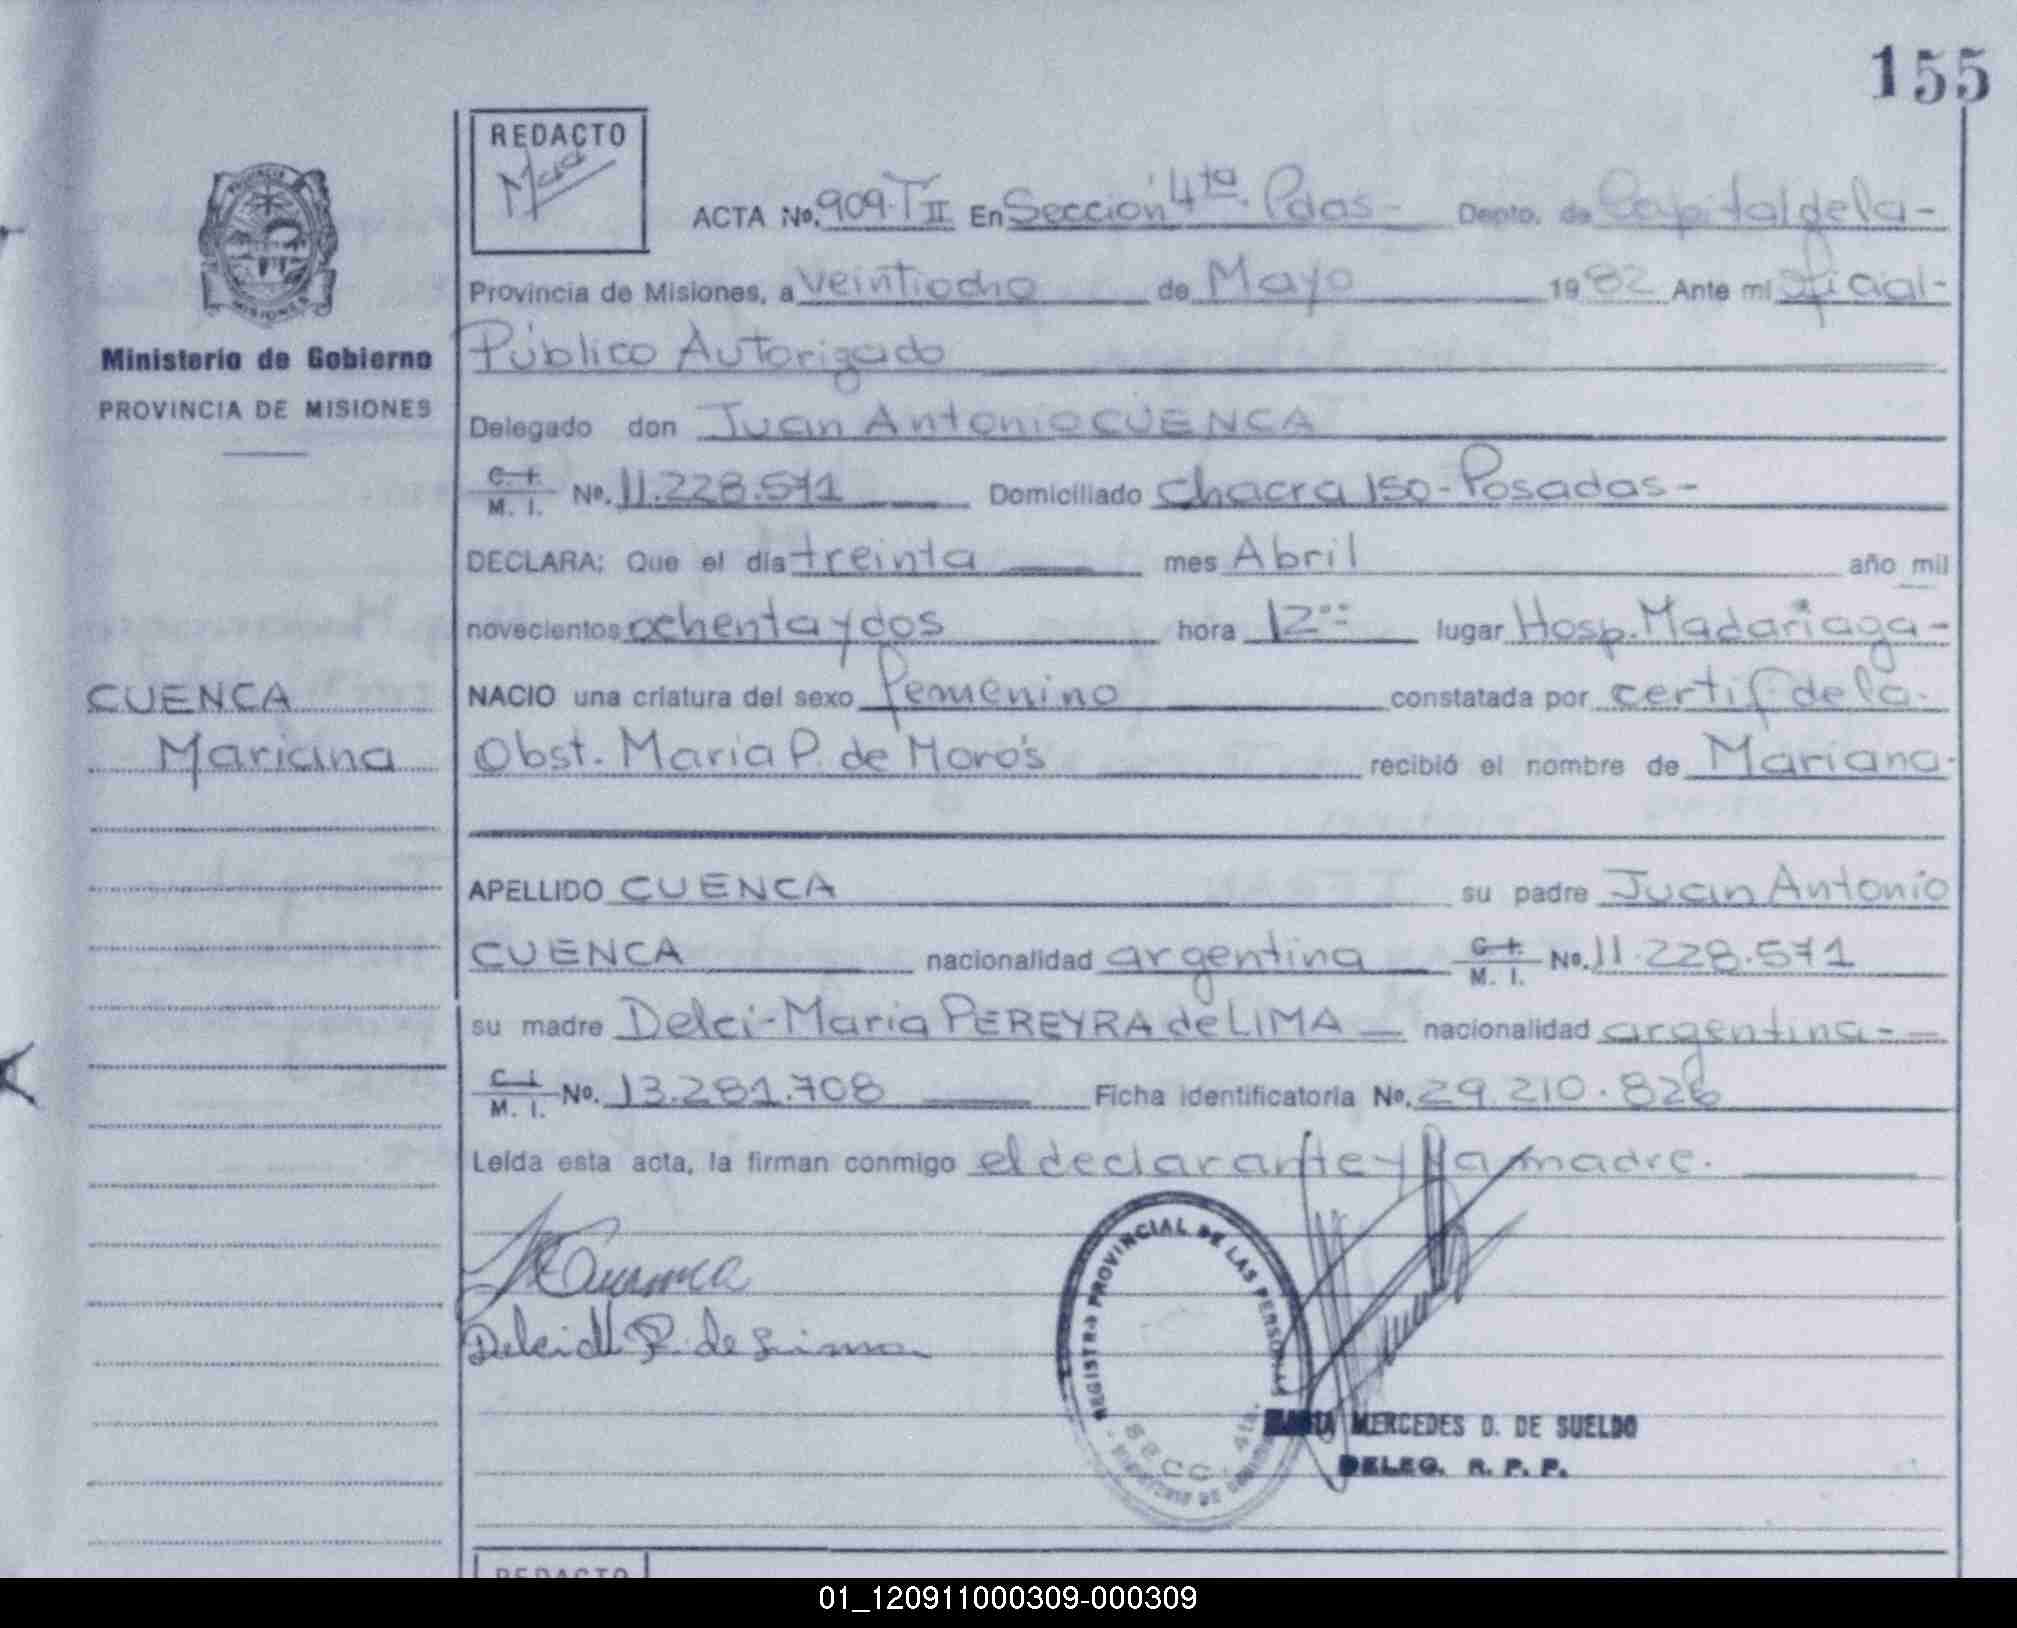 155
REDACTO
ACTA No. 909-T II En Sección 4ta. Pdas- Depto. de Capital de la-
Provincia de Misiones, a veintiocho de Mayo 1982 Ante mi Oficial-
Ministerio de Gobierno
Público Autorizado
PROVINCIA DE MISIONES
Delegado don Juan Antonio CUENCA
C. I.
M. I. No. 11.228.571 Domiciliado Chacra 150-Posadas-
DECLARA: Que el día treinta mes Abril año mil
novecientos ochenta y dos hora 12°° lugar Hosp. Madariaga-
NACIO una criatura del sexo femenino constatada por certif de la-
CUENCA
Mariana
Obst. Maria P. de Moro's recibió el nombre de Mariana-
APELLIDO CUENCA su padre Juan Antonio
CUENCA nacionalidad argentina C. I.
M. I. No. 11.228.571
su madre Delci-Maria PEREYRA de LIMA nacionalidad argentina-
C. I.
M. I. No. 13.281.708 Ficha identificatoria No. 29.210.826
Leída esta acta, la firman conmigo el declarante y la madre.
Cuenca
Delci M P. de Lima
REGISTRO PROVINCIAL DE LAS PERSONAS
SECC. 4ta.
MARIA MERCEDES D. DE SUELDO
DELEG. R. P. P.
REDACTO
01_120911000309-000309